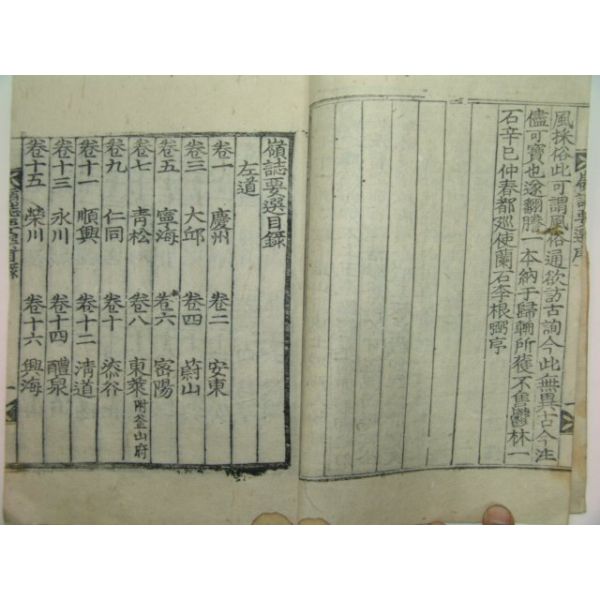 風採俗此可謂風俗通欲訪古詢今此無異古今注
儘可寶也遂翻謄一本納于歸輈所獲不啻鬱林一
石辛巳仲春都巡使蘭石李根弼序
嶺誌要選序
嶺誌要選目錄
左道
卷一 慶州 卷二 安東
卷三 大邱 卷四 蔚山
卷五 寧海 卷六 密陽
卷七 青松 卷八 東萊附釜山府
卷九 仁同 卷十 漆谷
卷十一 順興 卷十二 淸道
卷十三 永川 卷十四 醴泉
卷十五 榮川 卷十六 興海